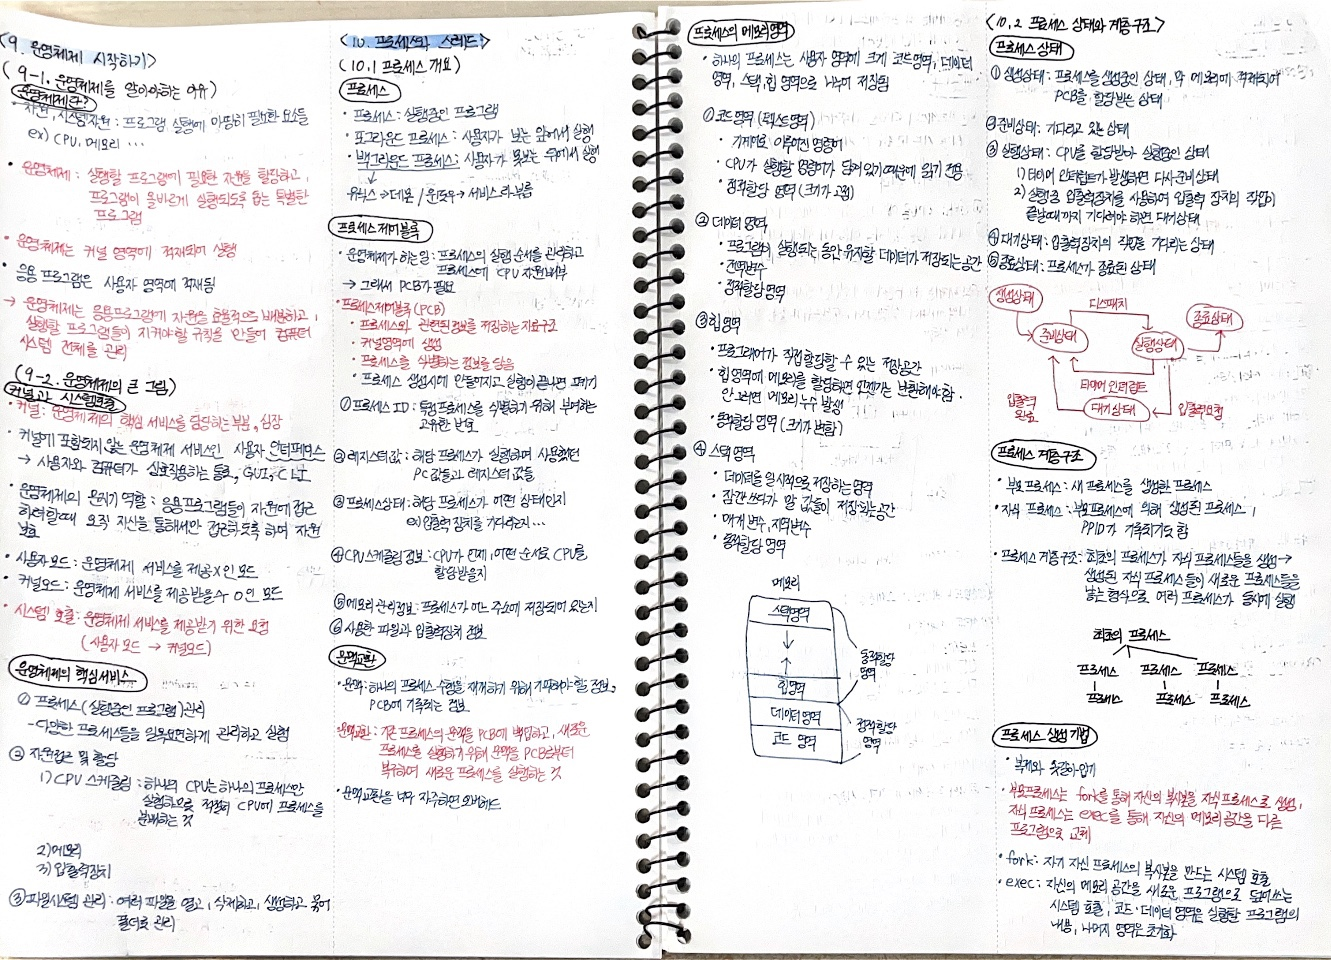 <9. 운영체제 시작하기>
(9-1. 운영체제를 알아야하는 이유)
운영체제란?
· 자원, 시스템자원 : 프로그램 실행에 마땅히 필요한 요소들
ex) CPU, 메모리 ...
· 운영체제 : 실행할 프로그램에 필요한 자원을 할당하고,
프로그램이 올바르게 실행되도록 돕는 특별한
프로그램
· 운영체제는 커널 영역에 적재되어 실행
· 응용 프로그램은 사용자 영역에 적재됨
→ 운영체제는 응용프로그램에 자원을 효율적으로 배분하고,
실행할 프로그램들이 지켜야할 규칙을 만들어 컴퓨터
시스템 전체를 관리
(9-2. 운영체제의 큰 그림)
커널과 시스템호출
· 커널 : 운영체제의 핵심 서비스를 담당하는 부분, 심장
· 커널에 포함되지 않는 운영체제 서비스인 사용자 인터페이스
→ 사용자와 컴퓨터가 상호작용하는 통로, GUI, CLI
· 운영체제의 문지기 역할 : 응용프로그램들이 자원에 접근
하려할때 오직 자신을 통해서만 접근하도록 하여 자원
보호
· 사용자모드 : 운영체제 서비스를 제공X인 모드
· 커널모드 : 운영체제 서비스를 제공받을수 O인 모드
· 시스템 호출 : 운영체제 서비스를 제공받기 위한 요청
(사용자모드 → 커널모드)
운영체제의 핵심서비스
① 프로세스(실행중인 프로그램)관리
- 다양한 프로세스들을 일목요연하게 관리하고 실행
② 자원접근 및 할당
1) CPU 스케줄링 : 하나의 CPU는 하나의 프로세스만
실행하므로 적절히 CPU에 프로세스를
분배하는 것
2) 메모리
3) 입출력장치
③ 파일시스템 관리 : 여러 파일을 열고, 삭제하고, 생성하고 묶어
폴더로 관리
<10. 프로세스와 스레드>
(10.1 프로세스 개요)
프로세스
· 프로세스 : 실행중인 프로그램
· 포그라운드 프로세스 : 사용자가 보는 앞에서 실행
· 백그라운드 프로세스 : 사용자가 못보는 뒤에서 실행
↓
유닉스→데몬 / 윈도우→서비스라부름
프로세스제어블록
· 운영체제가 하는일 : 프로세스의 실행 순서를 관리하고
프로세스에 CPU 자원배부
→ 그래서 PCB가 필요
프로세스제어블록(PCB)
· 프로세스와 관련된정보를 저장하는 자료구조
· 커널영역에 생성
· 프로세스를 식별하는 정보를 담음
· 프로세스 생성시에 만들어지고 실행이 끝나면 폐기
① 프로세스 ID : 특정프로세스를 식별하기 위해 부여하는
고유한 번호
② 레지스터값 : 해당 프로세스가 실행하며 사용했던
PC값들과 레지스터 값들
③ 프로세스상태 : 해당 프로세스가 어떤 상태인지
ex) 입출력 장치를 기다리는지...
④ CPU스케줄링 정보 : CPU가 언제, 어떤 순서로 CPU를
할당받을지
⑤ 메모리관리정보 : 프로세스가 어느 주소에 저장되어 있는지
⑥ 사용한 파일과 입출력장치 정보
문맥교환
· 문맥 : 하나의 프로세스 수행을 재개하기 위해 기억해야 할 정보,
PCB에 기록되는 정보
문맥교환 : 기존 프로세스의 문맥을 PCB에 백업하고, 새로운
프로세스를 실행하기위해 문맥을 PCB로부터
복구하여 새로운 프로세스를 실행하는 것
· 문맥교환을 너무 자주하면 오버헤드
프로세스의 메모리영역
· 하나의 프로세스는 사용자 영역에 크게 코드영역, 데이터
영역, 스택, 힙 영역으로 나뉘어 저장됨
① 코드영역 (텍스트영역)
· 기계어로 이루어진 명령어
· CPU가 실행할 명령어가 담겨있기 때문에 읽기 전용
· 정적할당 영역 (크기가 고정)
② 데이터 영역
· 프로그램이 실행되는 동안 유지할 데이터가 저장되는 공간
· 전역변수
· 정적할당영역
③ 힙 영역
· 프로그래머가 직접 할당할 수 있는 저장공간
· 힙 영역에 메모리를 할당하면 언젠가는 반환해야함.
안그러면 메모리누수 발생
· 동적할당 영역 (크기가 변함)
④ 스택 영역
· 데이터를 일시적으로 저장하는 영역
· 잠깐 쓰다가 말 값들이 저장되는공간
· 매개변수, 지역변수
· 동적할당 영역
메모리
스택영역
↓
↑
힙영역
데이터영역
코드 영역
동적할당
영역
정적할당
영역
<10.2 프로세스 상태와 계층구조>
프로세스 상태
① 생성상태 : 프로세스를 생성중인 상태, 막 메모리에 적재되어
PCB를 할당받은 상태
② 준비상태 : 기다리고 있는 상태
③ 실행상태 : CPU를 할당받아 실행중인 상태
1) 타이머 인터럽트가 발생하면 다시 준비상태
2) 실행중 입출력장치를 사용하여 입출력 장치의 작업이
끝날때까지 기다려야 하면 대기상태
④ 대기상태 : 입출력장치의 작업을 기다리는 상태
⑤ 종료상태 : 프로세스가 종료된 상태
생성상태
디스패치
종료상태
준비상태
실행상태
타이머 인터럽트
입출력
완료
대기상태
입출력요청
프로세스 계층구조
· 부모프로세스 : 새 프로세스를 생성한 프로세스
· 자식 프로세스 : 부모프로세스에 의해 생성된 프로세스,
PPID가 기록되기도 함
· 프로세스 계층구조 : 최초의 프로세스가 자식 프로세스들을 생성→
생성된 자식 프로세스들이 새로운 프로세스들을
낳는 형식으로 여러 프로세스가 동시에 실행
최초의 프로세스
프로세스 프로세스 프로세스
프로세스 프로세스 프로세스
프로세스 생성 기법
· 복제와 옷갈아입기
· 부모프로세스는 fork를 통해 자신의 복사본을 자식 프로세스로 생성,
자식 프로세스는 exec를 통해 자신의 메모리공간을 다른
프로그램으로 교체
· fork : 자기 자신 프로세스의 복사본을 만드는 시스템 호출
· exec : 자신의 메모리 공간을 새로운 프로그램으로 덮어쓰는
시스템 호출, 코드·데이터 영역은 실행할 프로그램의
내용, 나머지 영역은 초기화